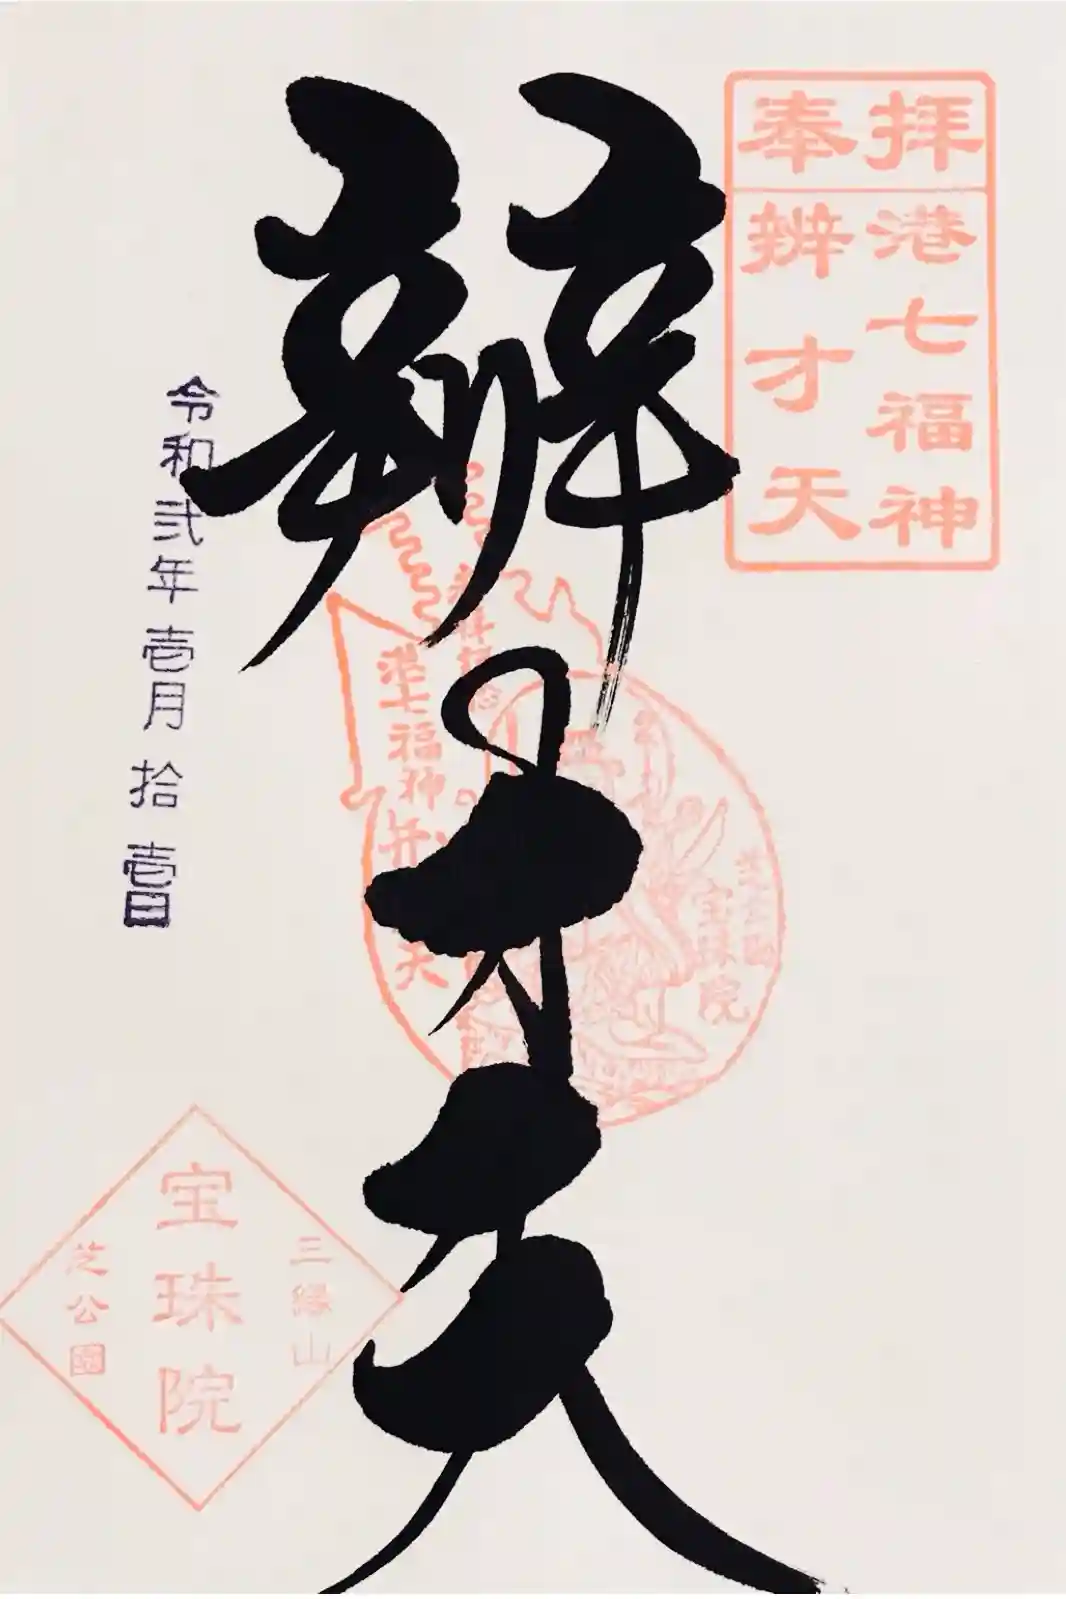 奉拝
港七福神
辨才天
辨才天
令和弐年壱月拾壱日
港七福神
宝珠院
三縁山
宝珠院
芝公園